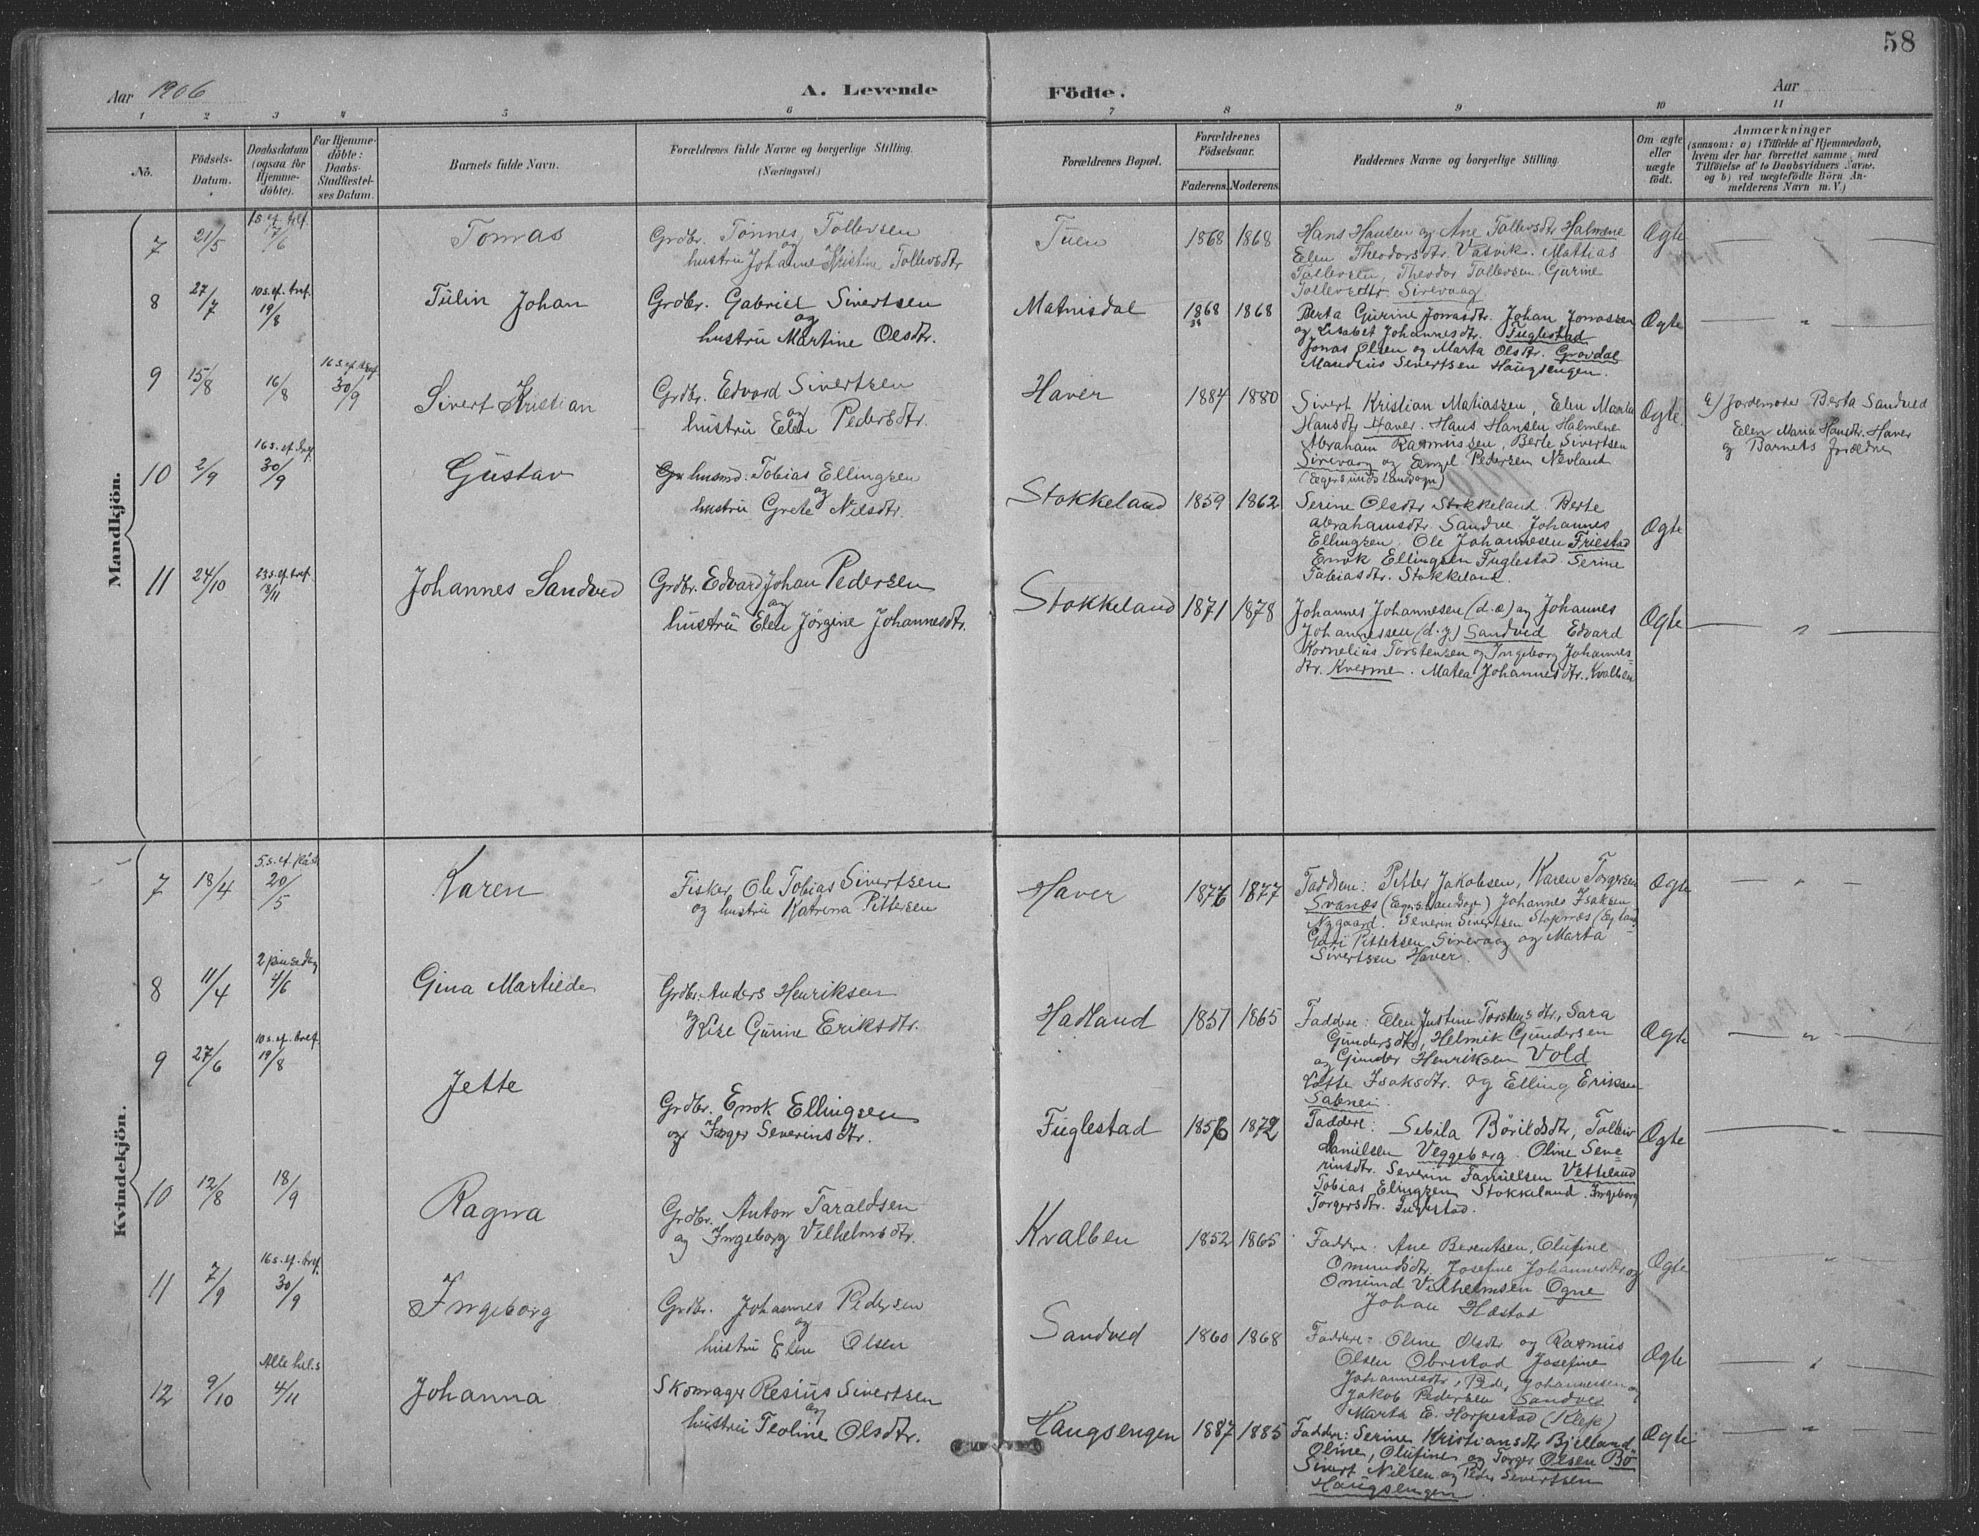 58
Aar 1906
A. Levende
Födte.
Aar
1 2 3 4 5 6 7 8 9 10 11
No.
Födsels-
Datum.
Daabsdatum
(ogsaa for
Hjemme-
döbte).
For Hjemme-
döbte:
Daabs-
Stadfæstel-
ses Datum.
Barnets fulde Navn.
Forældrenes fulde Navne og borgerlige Stilling.
(Næringsvei.)
Forældrenes Bopæl.
Forældrenes
Födselsaar.
Faderens.
Moderens.
Faddernes Navne og borgerlige Stilling.
Om ægte
eller
uægte
födt.
Anmærkninger
(saasom: a) i Tilfælde af Hjemmedaab,
hvem der har forrettet samme, med
Tilföielse af to Daabsvidners Navne,
og b) ved uægtefödte Börn An-
melderens Navn m. V.)
Mandkjön.
7 21/5
7/6
Tomas
Grdbr. Tönnes Tollevsen
og
hustru Johanne Kristine Tollevsdtr
Tuen
1868 1868
Hans Hansen og Ane Tollevsdtr Halmene
Elen Theodorsdtr. Vasvik. Mattias
Tollevsen, Theodor Tollevsen. Gurine
Tollevsdtr. Sirevaag.
Ægte
8 27/7
10 s. ef. tref.
19/8
Tulin Johan
Grdbr. Gabriel Sivertsen
og
hustru Martine Olsdtr.
Matnisdal
1868 1868
Berta Gurine Jonasdtr. Johan Jonassen
og Lisabet Johannesdtr. Fuglestad
Jonas Olsen og Marta Olsdtr. Grøvdal
Mandius Sivertsen Haugsengen.
Ægte
"
9 15/8
16/8
16 s. ef. tref.
30/9
Sivert Kristian
Grdbr. Edvard Sivertsen
og
hustru Elen Pedersdtr.
Haver
1884 1880
Sivert Kristian Matiassen, Elen Maria
Hansdtr Haver. Hans Hansen Halmene
Abraham Rasmussen, Berte Sivertsen
Sirevaag og Pedersen Nevland
(Egersunds landsogn)
Ægte.
a) Jordemoder Berta Sandved
Elen Maria Hansdtr. Haver
og Barnets Forældre
10 2/9
16 s. ef. tref.
30/9
Gustav
husmd. Tobias Ellingsen
og
hustru Grete Nilsdtr.
Stokkeland
1859 1862
Serine Olsdtr Stokkeland. Berte
Abrahamsdtr. Sandve Johannes
Ellingsen, Ole Johannesen Friestad
Enok Ellingsen Fuglestad. Serine
Tobiasdtr. Stokkeland.
Ægte
11 24/10
23 s. ef. tref.
Johannes Sandved
Grdbr. Edvard Johan Pedersen
og
hustru Elen Jörgine Johannesdtr.
Stokkeland
1871 1878
Johannes Johannesen (d.æ) og Johannes
Johannessen (d.y) Sandved Edvard
Kornelius Torstensen og Ingeborg Johannes=
dtr. Kverme. Matea Johannesdtr. Kvalben
Ægte
"
Kvindekjön.
7 18/4
20/5
Karen
Fisker Ole Tobias Sivertsen
og hustru Katrina Pittersen
Haver
1876 1877
Faddere: Pitter Jakobsen, Karen Torgersen
Svanæs Johannes Isaksen
Nygaard. Severin Sivertsen
Pittersen Sirevaag og Marta
Sivertsen Haver.
Ægte
"
8 11/4
2 pinsedag
4/6
Gina Martilde
Grdbr. Anders Henriksen
og Lise Gurine Eriksdtr.
Hadland
1857 1865
Faddere: Elen Justine Torstensdtr, Sara
Gundersdtr, Helmik Gundersen
og Gunder Henriksen Vold
Lotte Isaksdtr. og Elling Eriksen
Ægte
"
9 27/6
10 s. ef. tref.
19/8
Jette
Grdbr. Enok Ellingsen
og Inger Severinsdtr.
Fuglestad
1856 1872
Faddere: Sebila Börildsdtr, Tolleiv
Danielsen Veggeberg. Oline Seve-
rinsdtr. Severin Samuelsen Vetteland
Tobias Ellingsen Stokkeland. Ingeborg
Torgersdtr. Fuglestad.
Ægte
"
10 12/8
18/9
Ragna
Grdbr. Anton Taraldsen
og Ingeborg Vilhelmsdtr.
Kvalben
1852 1865
Faddere: Ane Berentsen, Olufine
Omundsdtr, Josefine Johannesdtr og
Omund Vilhelmsen Ogne
Johan Hæstad
Ægte
"
11 7/9
16 s. ef. tref.
30/9
Ingeborg
Grdbr. Johannes Pedersen
og
hustru Elen Olsen
Sandved
1860 1868
Faddere: Oline Olsdtr og Rasmus
Olsen Obrestad Josefine
Johannesdtr, Peder Johannesen og
Jakob Pedersen Sandved
Marta E. Horpestad (Klep)
Ægte
"
12 9/10
Alle hel.s
4/11
Johanna
Skomager Resius Sivertsen
og
hustru Teoline Olsdtr.
Haugsengen
1887 1885
Faddere: Serine Kristiansdtr Bjelland
Oline, Olufine og Torger Olsen Bö
Sivert Nilsen og Peder Sivertsen
Haugsengen.
Ægte
"